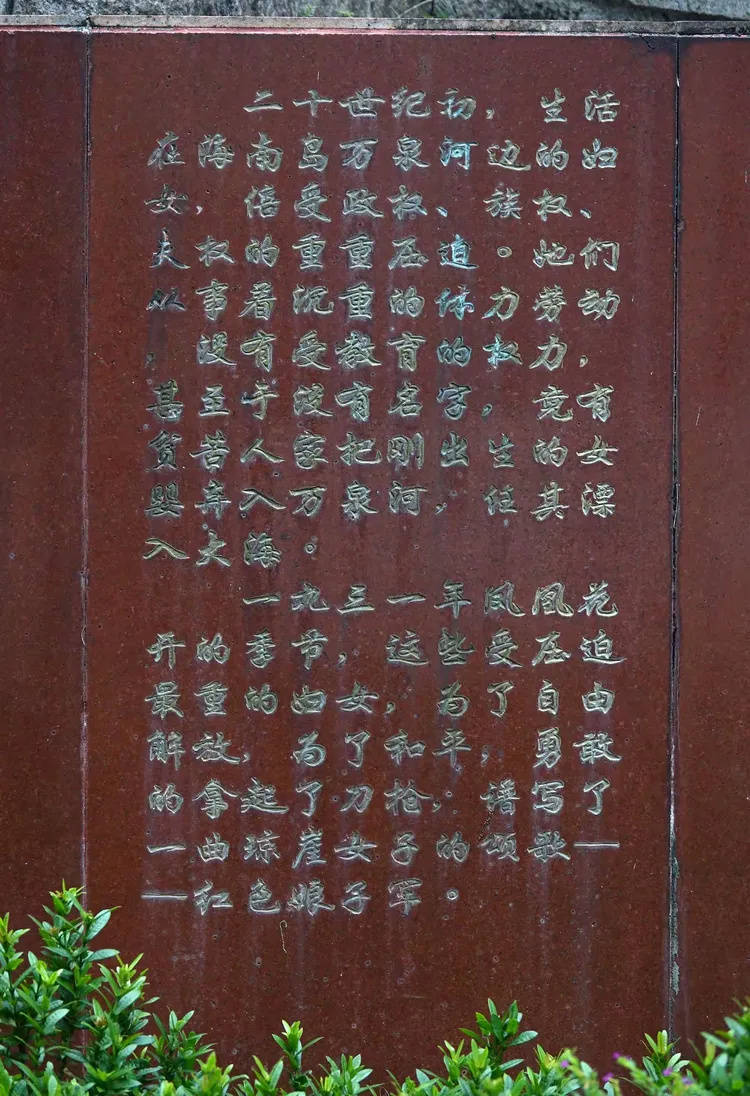 二十世纪初,生活
在海南岛万泉河边的妇
女,倍受政权、族权、
夫权的重重压迫。她们
从事着沉重的体力劳动
,没有受教育的权力,
甚至于没有名字,竟有
贫苦人家把刚出生的女
婴弃入万泉河,任其漂
入大海。
一九三一年凤凰花
开的季节,这些受压迫
最重的妇女,为了自由
解放,为了和平,勇敢
的拿起了刀枪,谱写了
一曲琼崖女子的颂歌—
—红色娘子军。